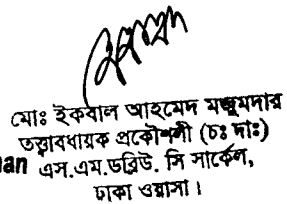 মোঃ ইকবাল আহমেদ মজুমদার
তত্ত্বাবধায়ক প্রকৌশলী (চঃ দাঃ)
nan এস.এম.ডব্লিউ. সি সার্কেল,
ঢাকা ওয়াসা।